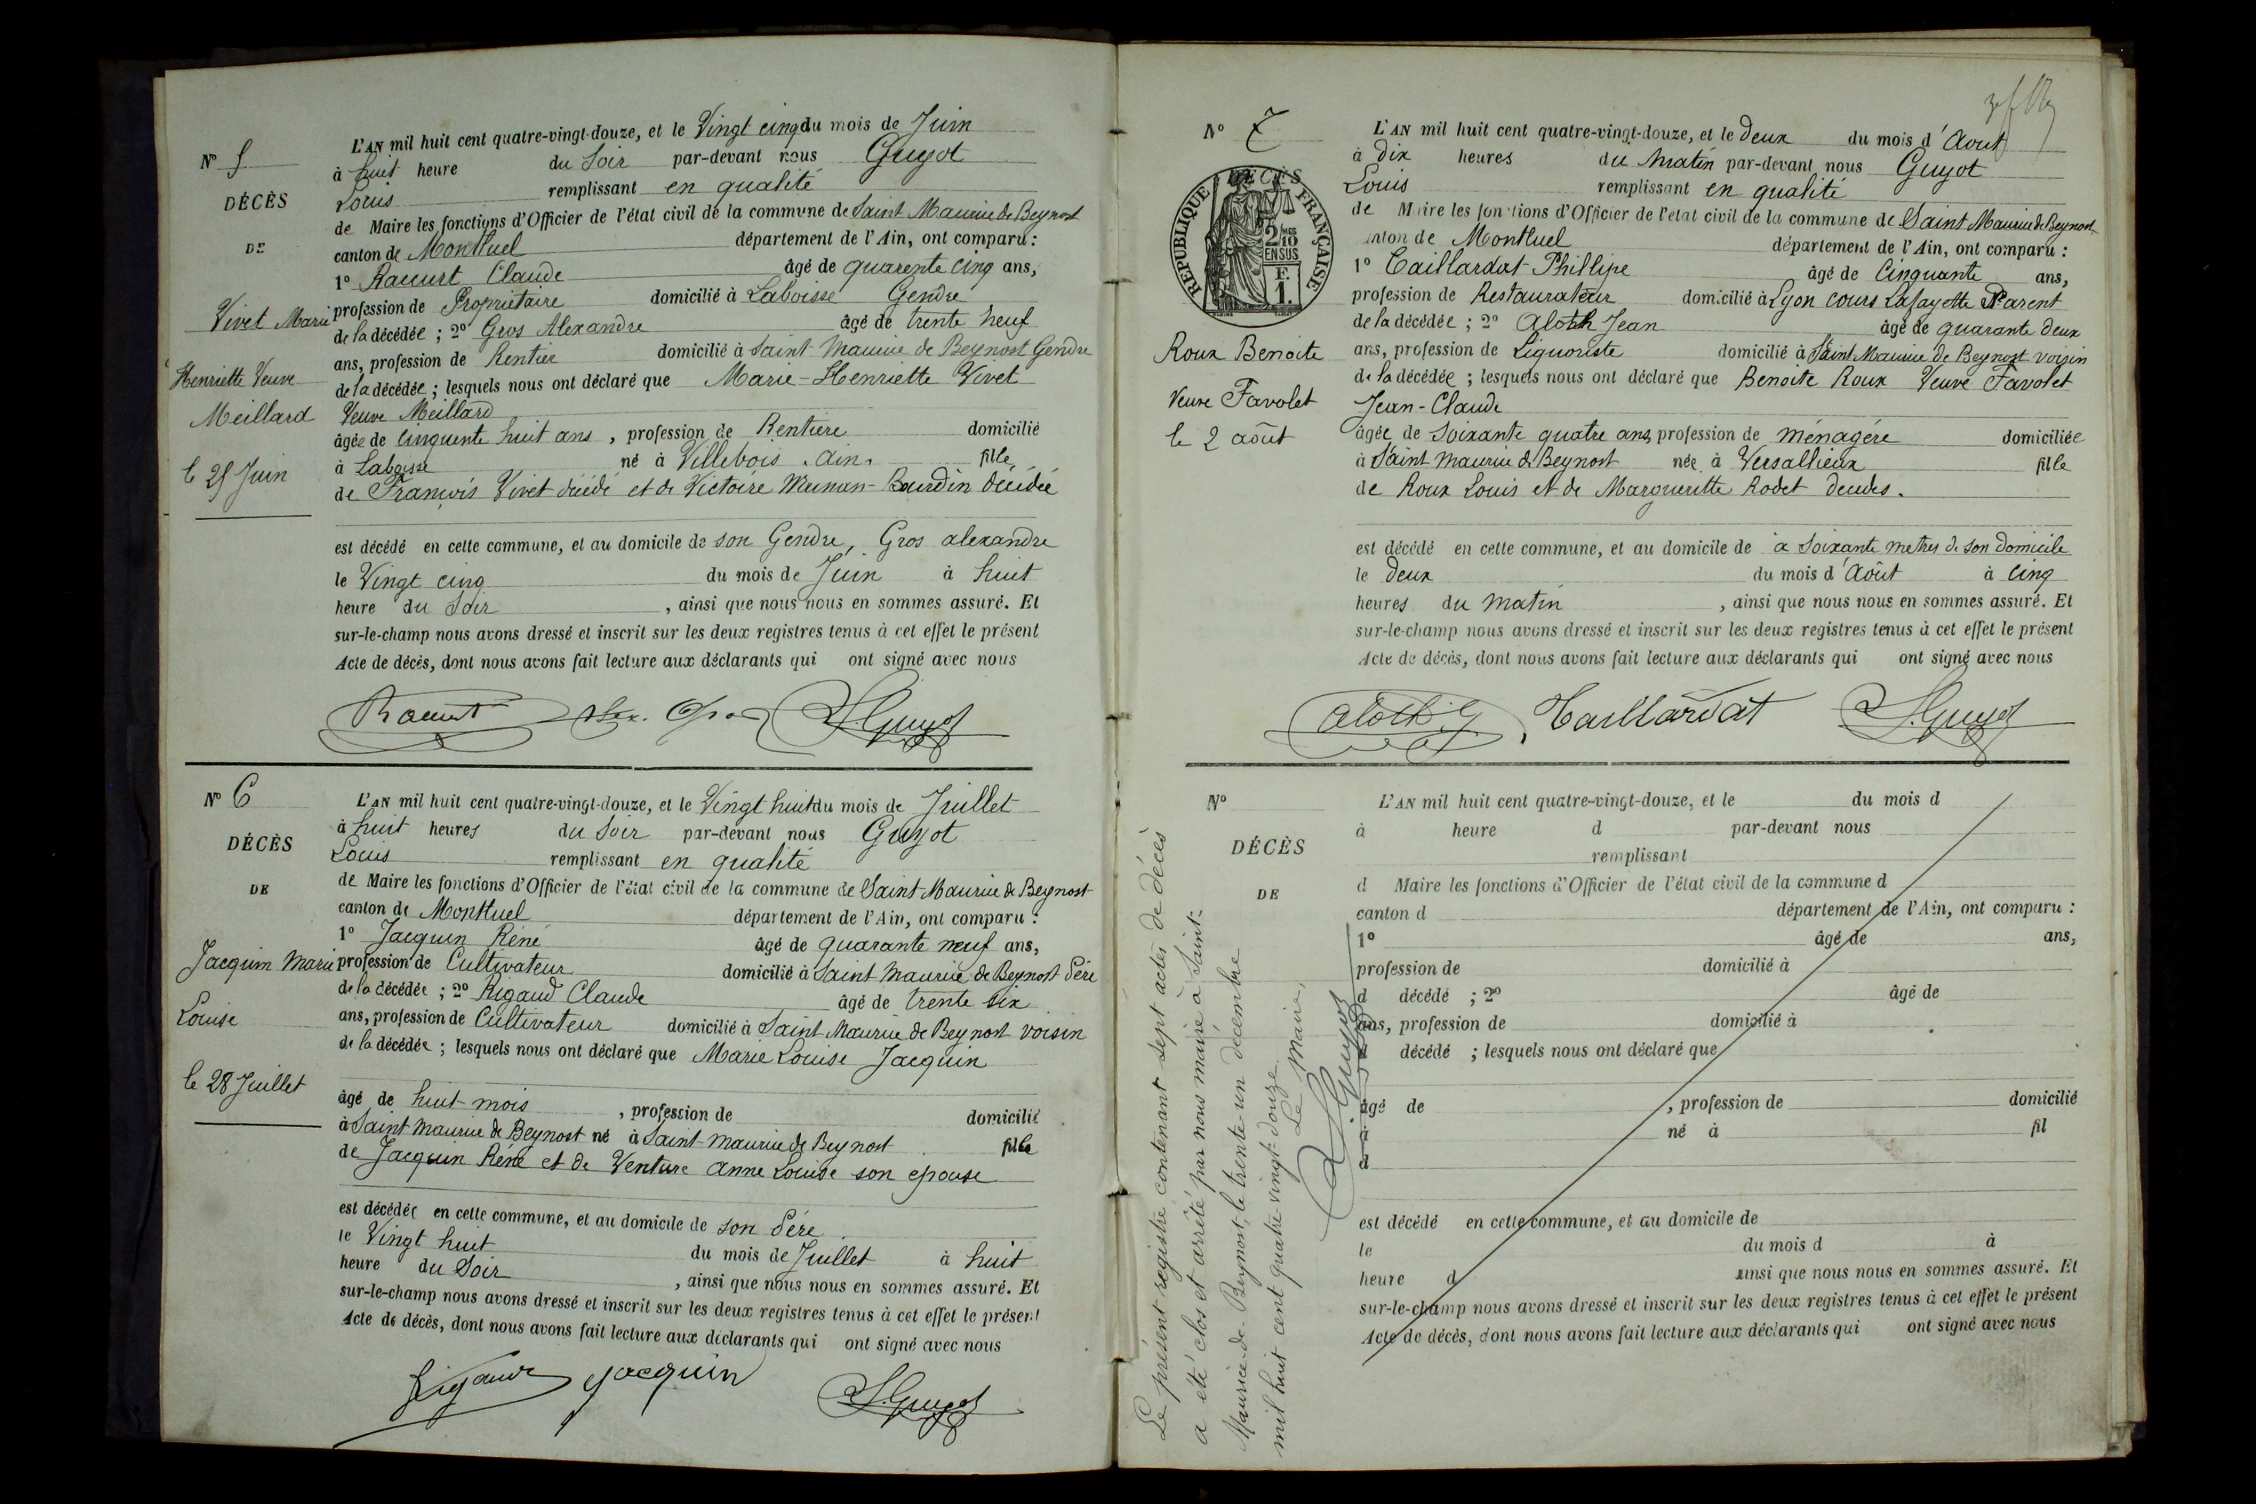 N° 5
DÉCÈS
DE
Vivet Marie
Henriette Veuve
Meillard
le 25 Juin
L'AN mil huit cent quatre-vingt-douze, et le Vingt cinq du mois de Juin
à huit heure du Soir par-devant nous Guyot
Louis remplissant en qualité
de Maire les fonctions d'Officier de l'état civil de la commune de Saint Maurice de Beynost
canton de Montluel département de l'Ain, ont comparu :
1° Raccurt Claude âgé de quarente cinq ans,
profession de Propriétaire domicilié à Laboisse Gendre
de la décédée ; 2° Gros Alexandre âgé de trente neuf
ans, profession de Rentier domicilié à Saint Maurice de Beynost Gendre
de la décédée ; lesquels nous ont déclaré que Marie-Henriette Vivet
Veuve Meillard
âgée de cinquente huit ans, profession de Rentière domicilié
à Laboisse né à Villebois . ain. fille
de François Vivet décédé et de Victoire Bourdin décédée
est décédé en cette commune, et au domicile de son Gendre, Gros alexandre
le Vingt cinq du mois de Juin à huit
heure du Soir , ainsi que nous nous en sommes assuré. Et
sur-le-champ nous avons dressé et inscrit sur les deux registres tenus à cet effet le présent
Acte de décès, dont nous avons fait lecture aux déclarants qui ont signé avec nous
Raccurt Alex. Gros L. Guyot
N° 6
DÉCÈS
DE
Jacquin Marie
Louise
le 28 Juillet
L'AN mil huit cent quatre-vingt-douze, et le Vingt huit du mois de Juillet
à huit heures du Soir par-devant nous Guyot
Louis remplissant en qualité
de Maire les fonctions d'Officier de l'état civil de la commune de Saint Maurice de Beynost
canton de Montluel département de l'Ain, ont comparu :
1° Jacquin Réné âgé de quarante neuf ans,
profession de Cultivateur domicilié à Saint Maurice de Beynost Père
de la décédée ; 2° Rigaud Claude âgé de trente six
ans, profession de Cultivateur domicilié à Saint Maurice de Beynost voisin
de la décédée ; lesquels nous ont déclaré que Marie Louise Jacquin
âgé de huit mois , profession de domicilié
à Saint Maurice de Beynost né à Saint-Maurice de Beynost fille
de Jacquin Réné et de Venture anne Louise son epouse
est décédée en cette commune, et au domicile de son Père
le Vingt huit du mois de Juillet à huit
heure du Soir , ainsi que nous nous en sommes assuré. Et
sur-le-champ nous avons dressé et inscrit sur les deux registres tenus à cet effet le présent
Acte de décès, dont nous avons fait lecture aux déclarants qui ont signé avec nous
Rigaud Jacquin L. Guyot
N° 7
DÉCÈS
RÉPUBLIQUE FRANÇAISE
2/10 EN SUS
F.
1.
Roux Benoite
Veuve Favolet
le 2 août
L'AN mil huit cent quatre-vingt-douze, et le deux du mois d'Aout
à dix heures du Matin par-devant nous Guyot
Louis remplissant en qualité
de Maire les fonctions d'Officier de l'état civil de la commune de Saint Maurice de Beynost
canton de Montluel département de l'Ain, ont comparu :
1° Taillardat Phillipe âgé de Cinquante ans,
profession de Restaurateur domicilié à Lyon cours Lafayette Parent
de la décédée ; 2° Aloth Jean âgé de quarante deux
ans, profession de Liquoriste domicilié à Saint Maurice de Beynost voisin
de la décédée ; lesquels nous ont déclaré que Benoite Roux Veuve Favolet
Jean-Claude
âgée de soixante quatre ans, profession de ménagére domiciliée
à Saint Maurice de Beynost née à Versallieux fille
de Roux Louis et de Margueritte Rodet decedes.
est décédé en cette commune, et au domicile de à soixante metres de son domicile
le deux du mois d'Août à cinq
heures du matin , ainsi que nous nous en sommes assuré. Et
sur-le-champ nous avons dressé et inscrit sur les deux registres tenus à cet effet le présent
Acte de décès, dont nous avons fait lecture aux déclarants qui ont signé avec nous
aloth Taillardat L. Guyot
Le présent registre contenant sept actes de décès
a été clos et arrêté par nous maire à Saint-
Maurice-de-Beynost, le trente-un décembre
mil huit cent quatre-vingt-douze
Le Maire,
L. Guyot
N°
DÉCÈS
DE
L'AN mil huit cent quatre-vingt-douze, et le du mois d
à heure d par-devant nous
remplissant
d Maire les fonctions d'Officier de l'état civil de la commune d
canton d département de l'Ain, ont comparu :
1° âgé de ans,
profession de domicilié à
d décédé ; 2° âgé de
ans, profession de domicilié à
d décédé ; lesquels nous ont déclaré que
âgé de , profession de domicilié
à né à fil
d
est décédé en cette commune, et au domicile de
le du mois d à
heure d ainsi que nous nous en sommes assuré. Et
sur-le-champ nous avons dressé et inscrit sur les deux registres tenus à cet effet le présent
Acte de décès, dont nous avons fait lecture aux déclarants qui ont signé avec nous